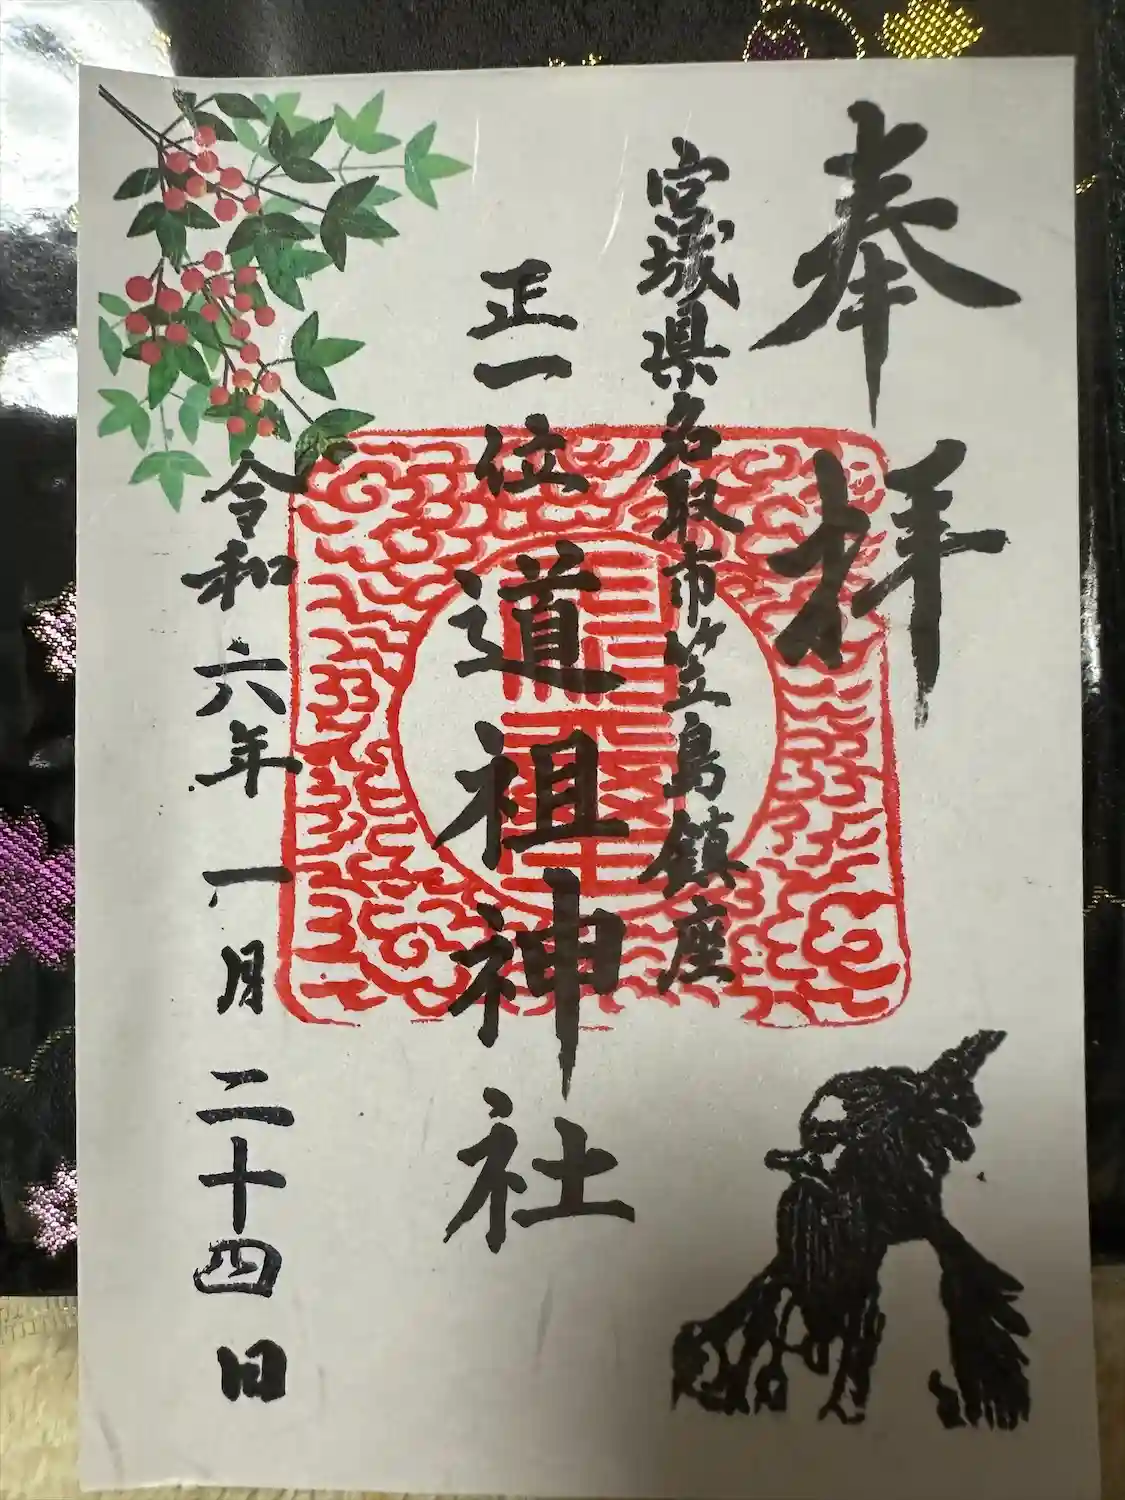 奉拝
宮城県名取市笠島鎮座
正一位道祖神社
令和六年一月二十四日